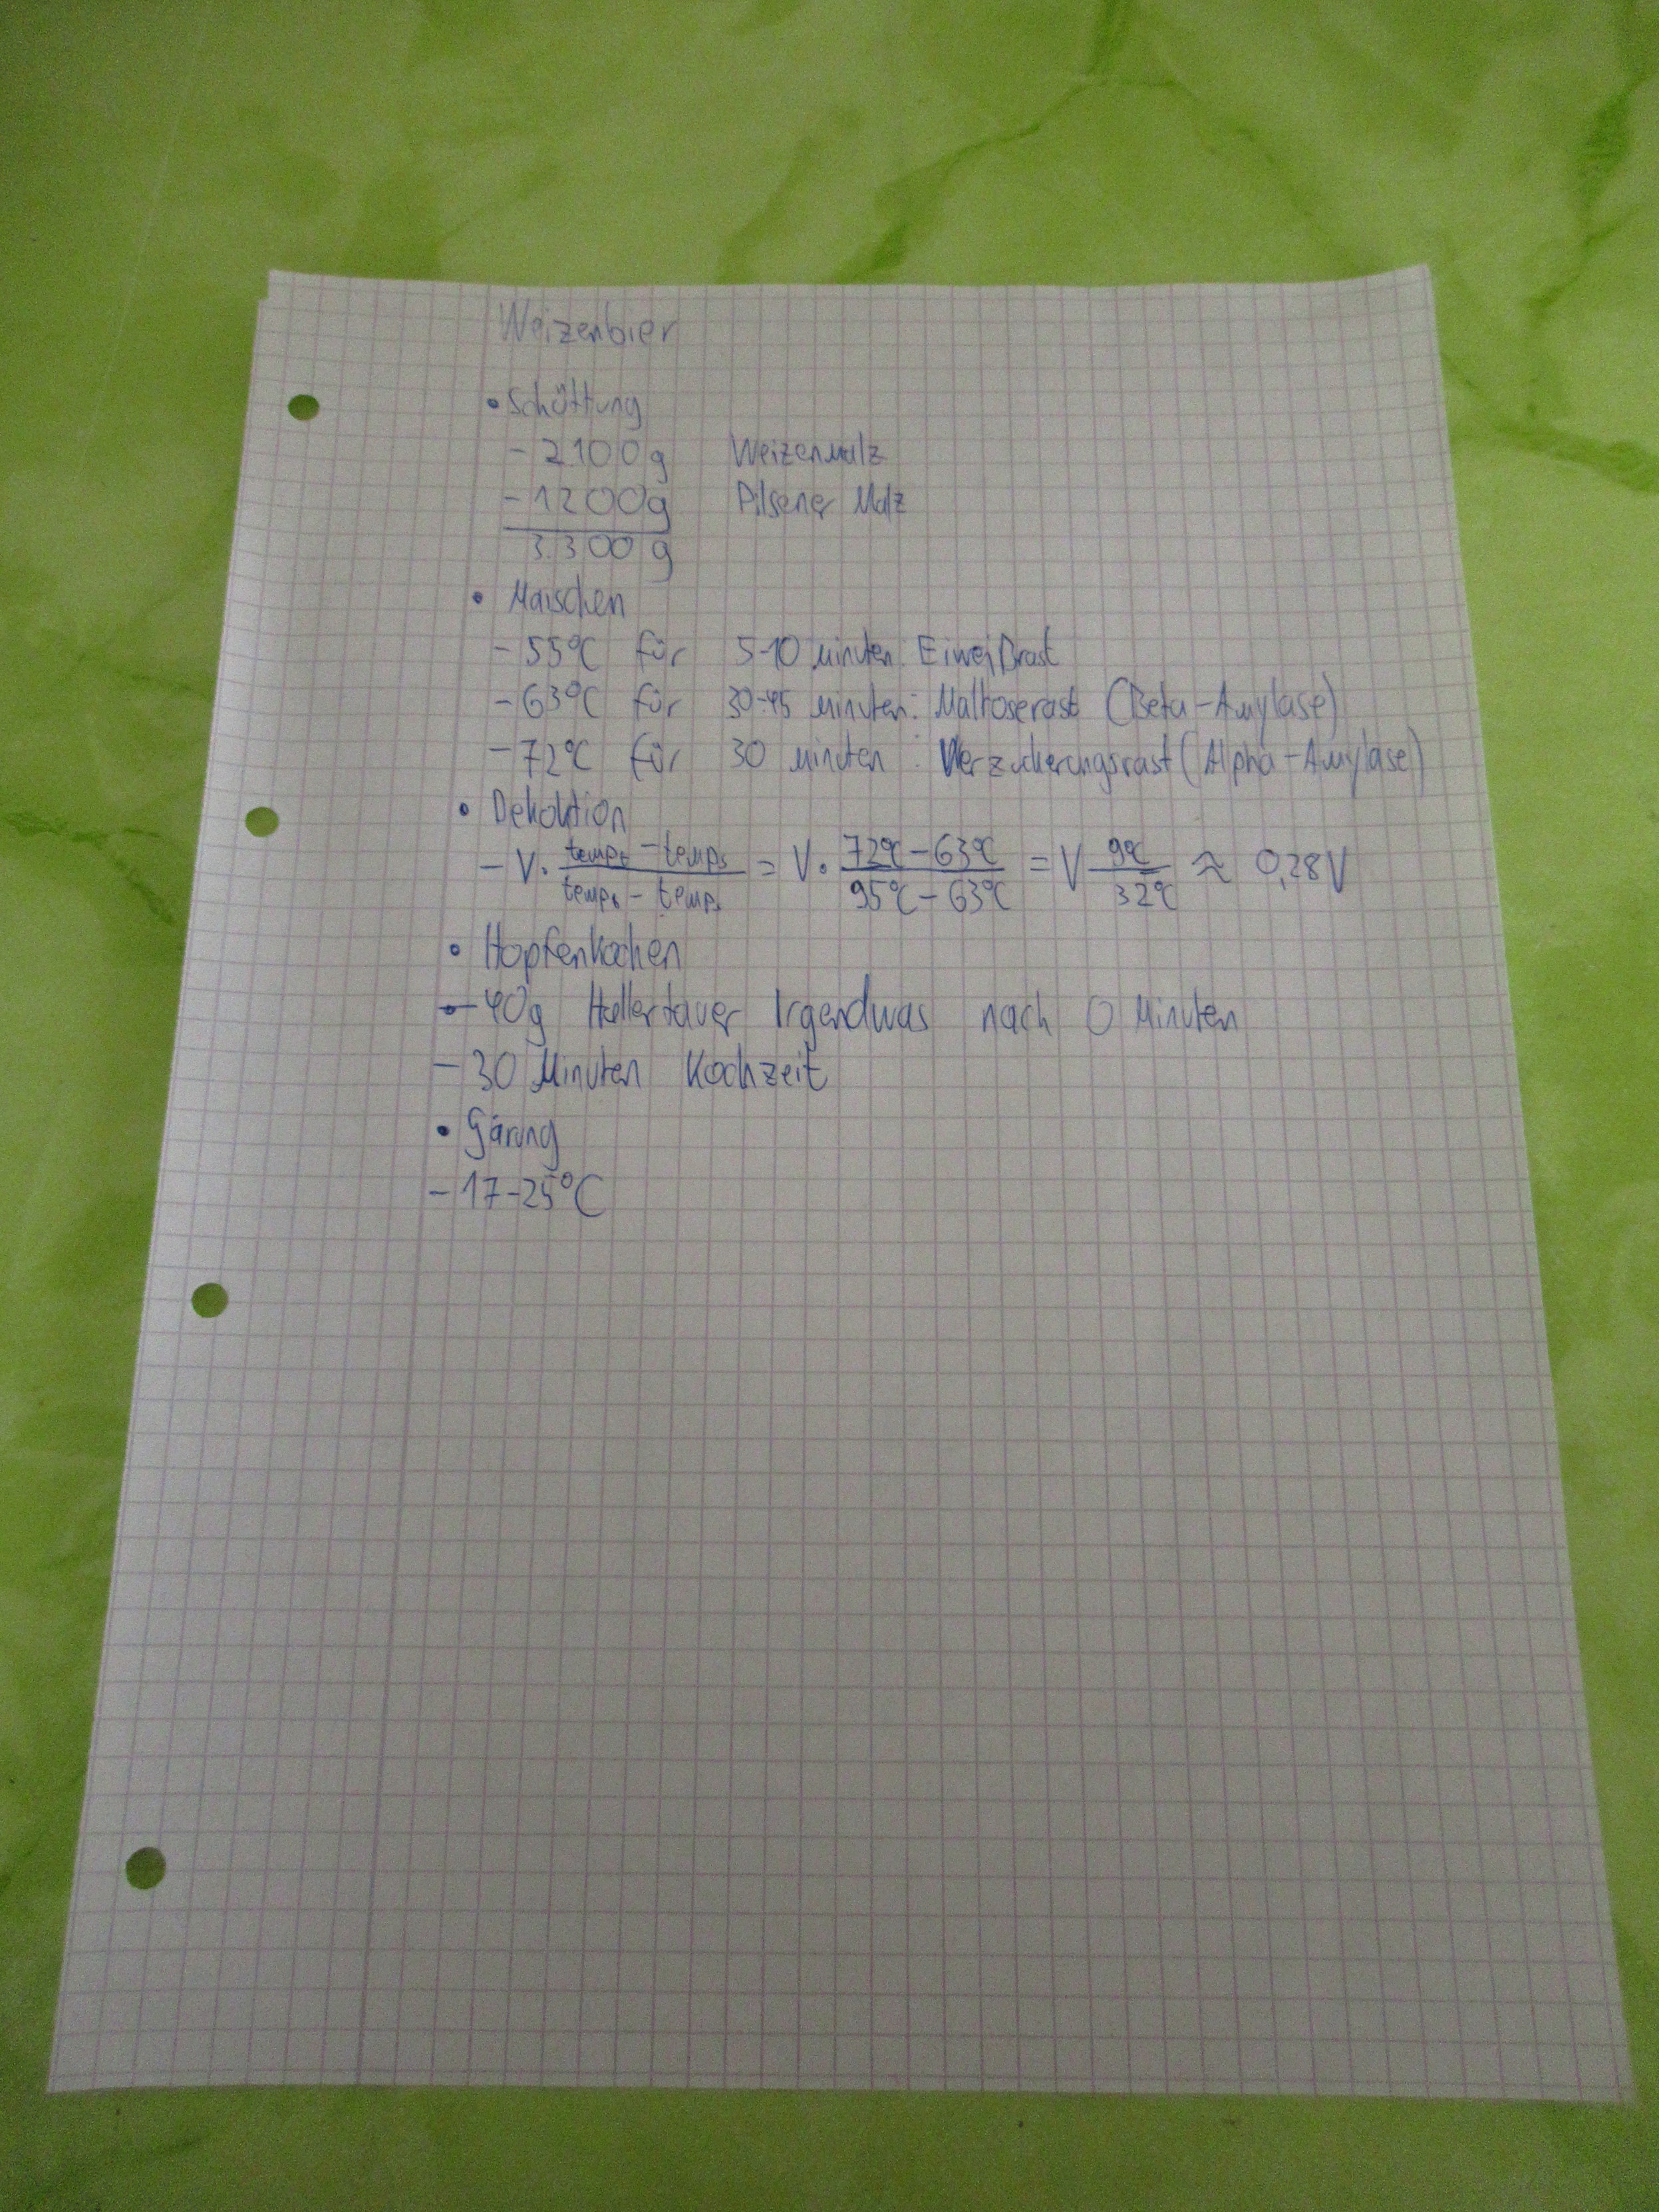 Weizenbier
• Schüttung
- 2100g Weizenmalz
- 1200g Pilsener Malz
3300g
• Maischen
- 55°C für 5-10 Minuten: Eiweißrast
- 63°C für 30-45 Minuten: Maltoserast (Beta-Amylase)
- 72°C für 30 Minuten: Verzuckerungsrast (Alpha-Amylase)
• Dekoktion
- V · (temp - temps)/(temp - temps) = V · (72°C - 63°C)/(95°C - 63°C) = V 9°C/32°C ≈ 0,28V
• Hopfenkochen
- 40g Hallertauer Irgendwas nach 0 Minuten
- 30 Minuten Kochzeit
• Gärung
- 17-25°C